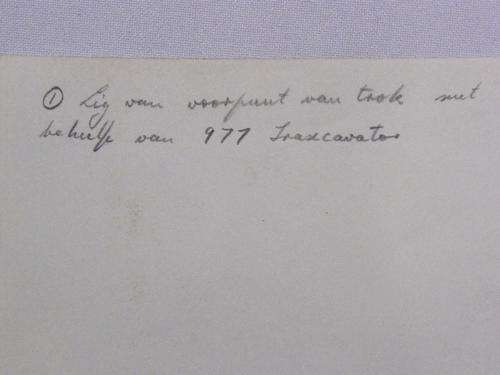 ① Lig van voorpunt van trok met
behulp van 977 Traxcavator